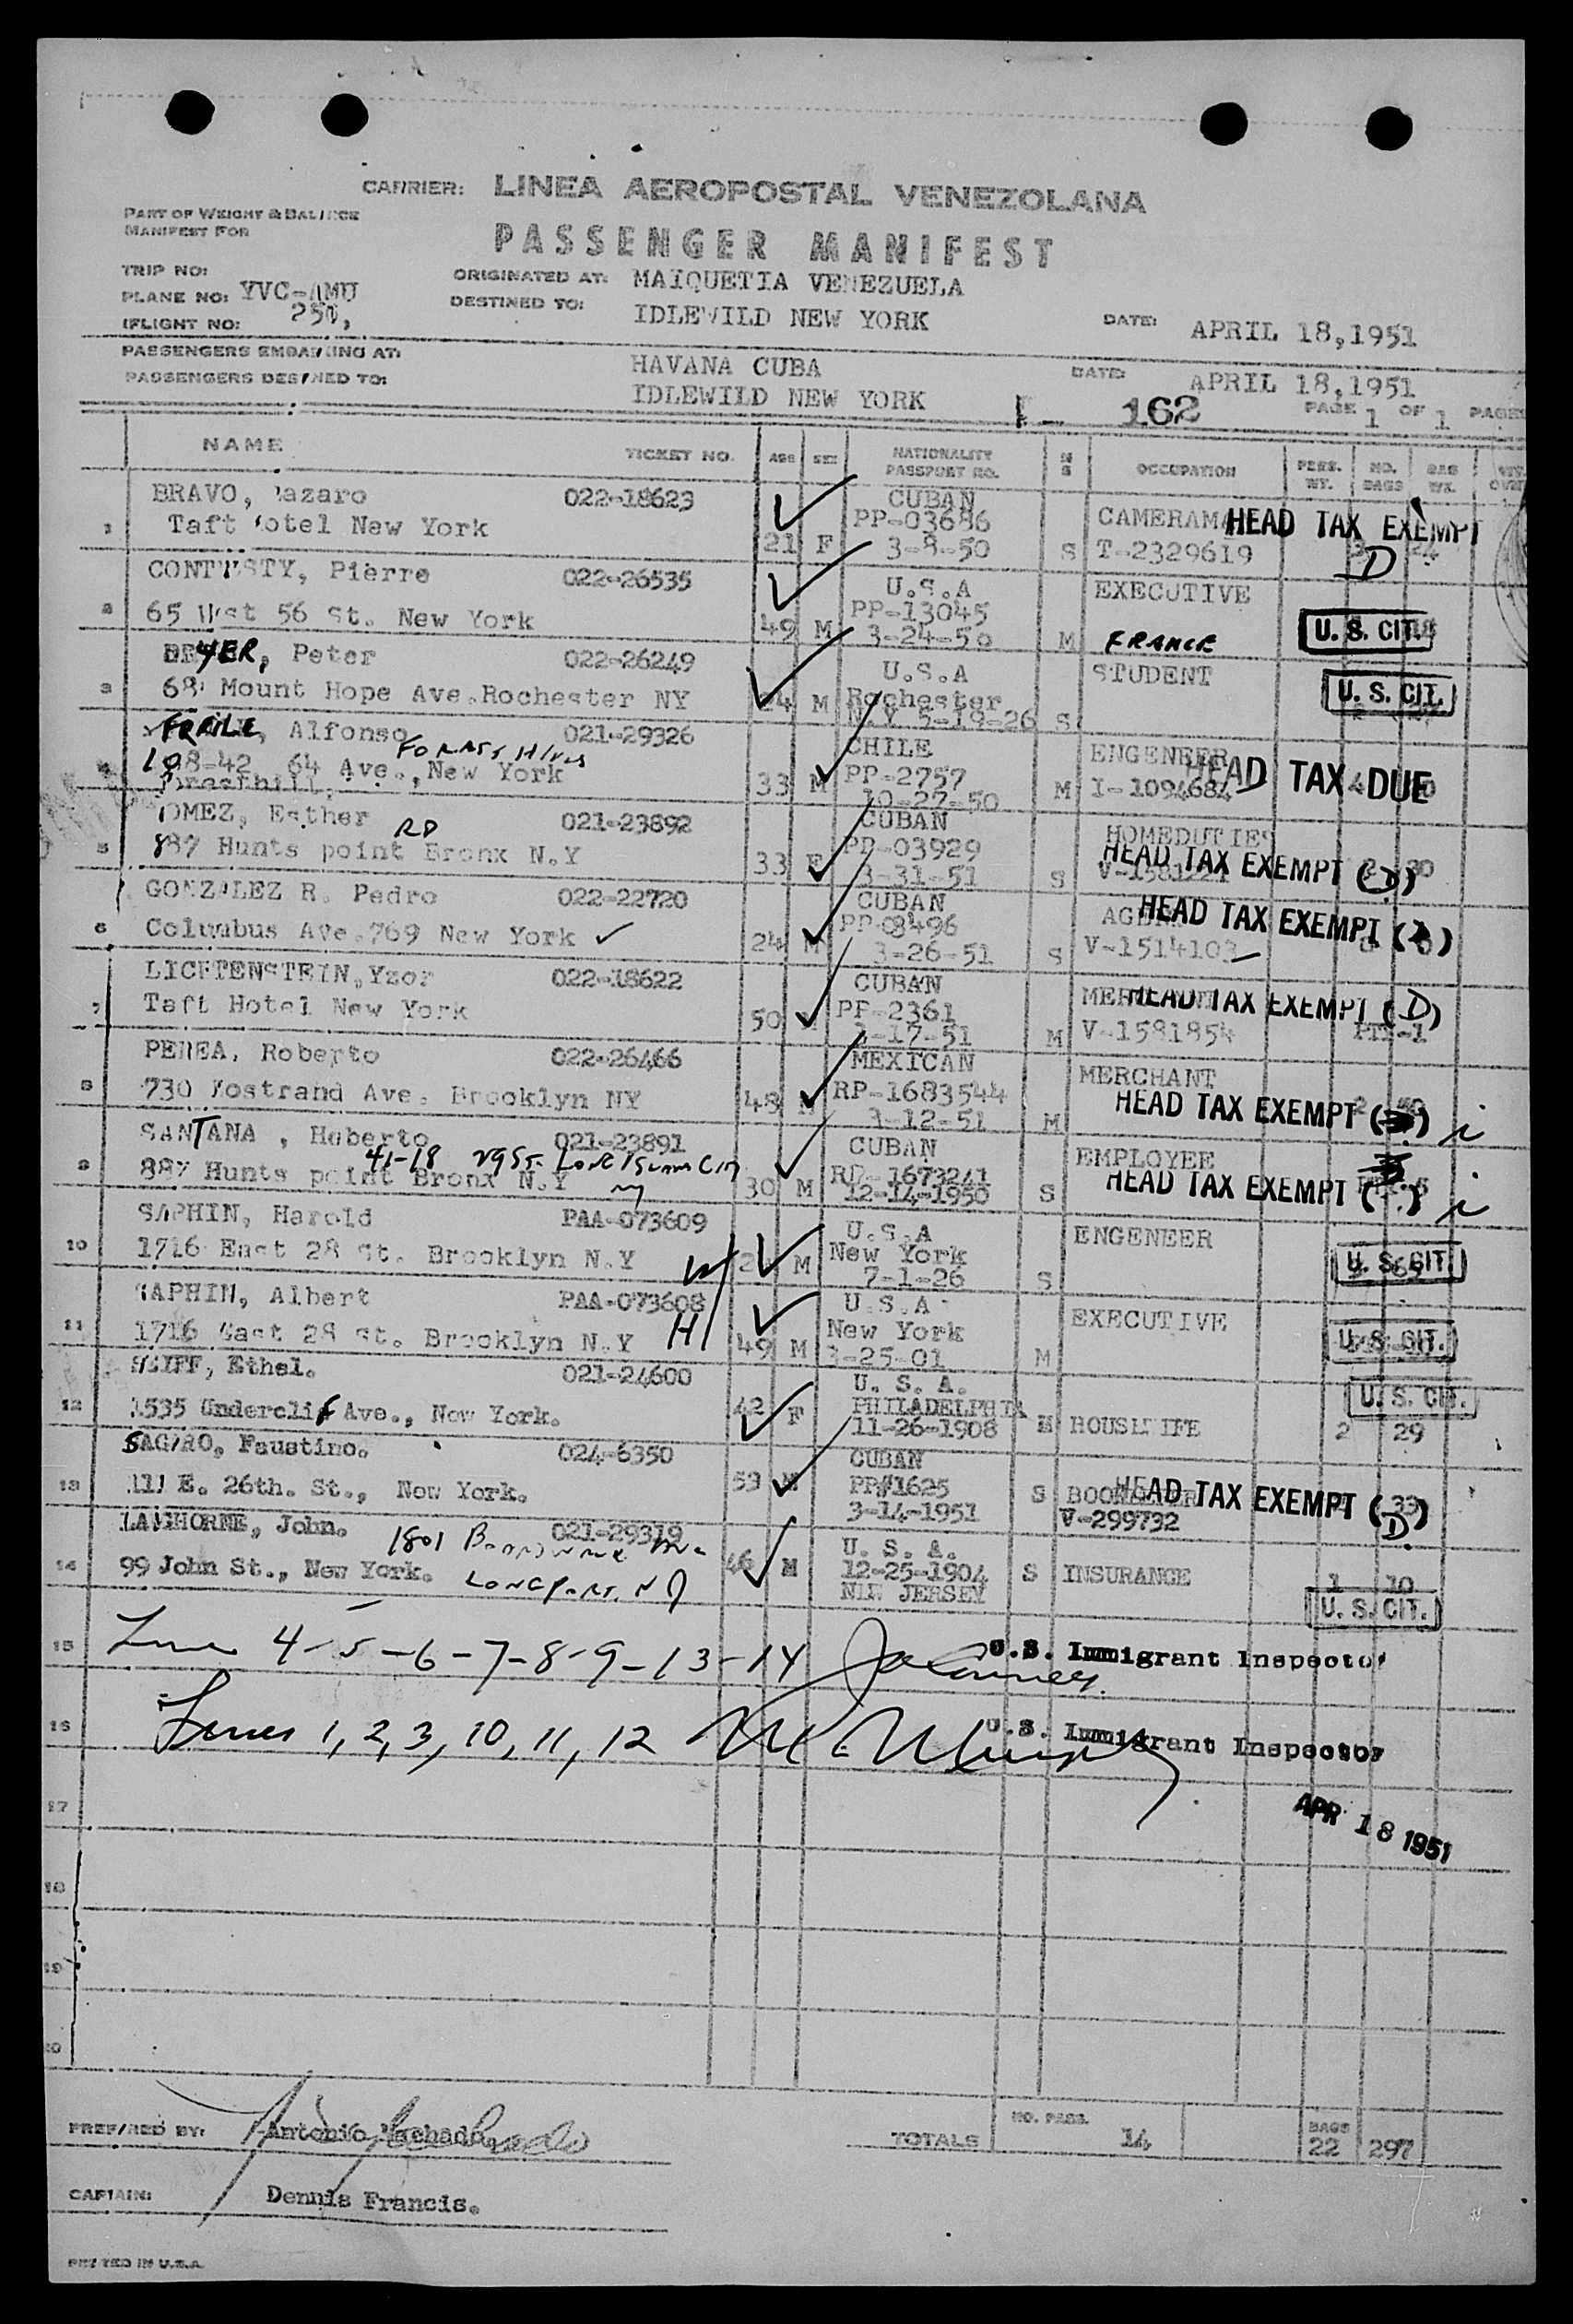 CARRIER: LINEA AEROPOSTAL VENEZOLANA
PART OF WEIGHT & BALANCE
MANIFEST FOR
PASSENGER MANIFEST
TRIP NO:
PLANE NO: YVC-AMU
(FLIGHT NO: 250,
ORIGINATED AT: MAIQUETIA VENEZUELA
DESTINED TO: IDLEWILD NEW YORK
DATE: APRIL 18,1951
PASSENGERS EMBARKING AT: HAVANA CUBA
DATE: APRIL 18,1951
PASSENGERS DESTINED TO: IDLEWILD NEW YORK
162
PAGE 1 OF 1 PAGES
NAME TICKET NO. AGE SEX NATIONALITY PASSPORT NO. M S OCCUPATION PERS. WT. NO. BAGS BAG WT.
BRAVO, Lazaro 022-18623 CUBAN
1 Taft Hotel New York PP-03686 HEAD TAX EXEMPT
21 F 3-8-50 S T-2329619 D
Pierre 022-26535 U.S.A EXECUTIVE
2 65 West 56 St. New York PP-13045
49 M 3-24-50 M FRANCE U. S. CIT.
Peter 022-26249 U.S.A STUDENT
3 Mount Hope Ave. Rochester NY M Rochester U. S. CIT.
N.Y 5-19-26 S
FRAILE, Alfonso 021-29326 CHILE ENGENEER
4 108-42 64 Ave., New York FOREST HILLS 33 M PP-2757 HEAD TAX DUE
10-27-50 M I-1094684
Esther 021-23892 CUBAN HOMEDUTIES
5 887 Hunts point RD Bronx N.Y 33 F PP-03929 HEAD TAX EXEMPT (D)
3-31-51 S
GONZALEZ R. Pedro 022-22720 CUBAN
6 Columbus Ave. 769 New York 24 M PP-08496 HEAD TAX EXEMPT
3-26-51 S V-1514103
LICHTENSTEIN, Yzor 022-18622 CUBAN
7 Taft Hotel New York 50 PP-2361 HEAD TAX EXEMPT (D)
M V-1581854
PEREA, Roberto 022-26466 MEXICAN MERCHANT
8 730 Nostrand Ave. Brooklyn NY 48 M RP-1683544 HEAD TAX EXEMPT
3-12-51 M
SANTANA, Heberto 021-23891 CUBAN EMPLOYEE
9 887 Hunts point Bronx N.Y 30 M RP-1673241 HEAD TAX EXEMPT
12-14-1950 S
SAPHIN, Harold PAA-073609 U.S.A ENGENEER
10 1716 East 28 St. Brooklyn N.Y M New York U. S. CIT.
7-1-26 S
SAPHIN, Albert PAA-073608 U.S.A EXECUTIVE
11 1716 East 28 St. Brooklyn N.Y 49 M New York U. S. CIT.
3-25-01 M
Ethel. 021-24600 U. S. A.
12 1535 Undercliff Ave., New York. 42 F PHILADELPHIA U. S. CIT.
11-26-1908 M HOUSEWIFE 2 29
Faustino. 024-6350 CUBAN
13 E. 26th. St., New York. 53 M PP#1625 S HEAD TAX EXEMPT (D)
3-14-1951 V-299732
LANGHORNE, John. 021-29319 U. S. A.
14 99 John St., New York. 46 M 12-25-1904 S INSURANCE 1 10
1801 LONGPORT, NJ NEW JERSEY U. S. CIT.
15 4-5-6-7-8-9-13-14 U.S. Immigrant Inspector
16 Lines 1, 2, 3, 10, 11, 12 U.S. Immigrant Inspector
17
APR 18 1951
18
19
20
PREPARED BY: Antonio Machado.
TOTALS NO. PASS. 14 BAGS 22 297
CAPTAIN: Dennis Francis.
PRINTED IN U.S.A.